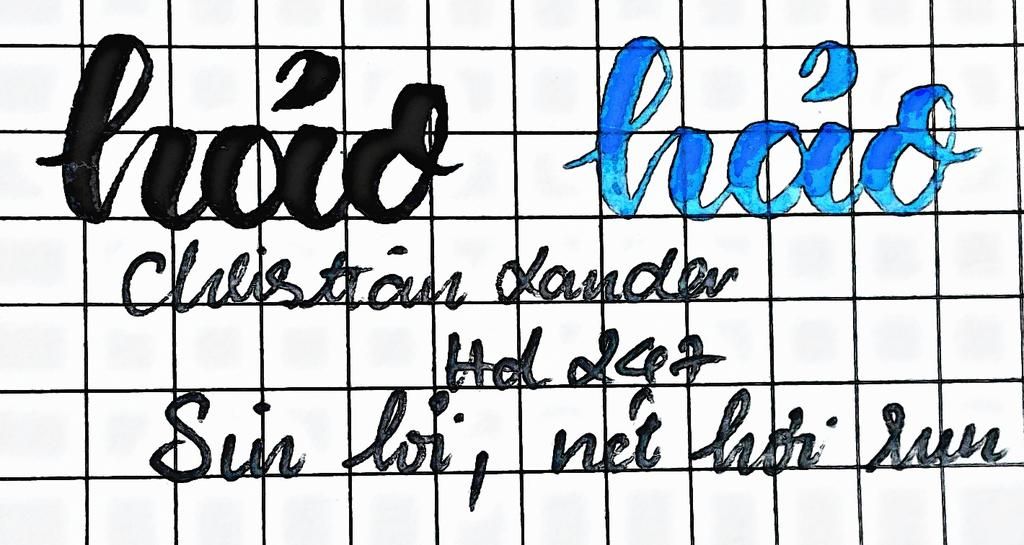 hảo hảo
Christian Lander
Hd 247
Sin lỗi, nét hơi run